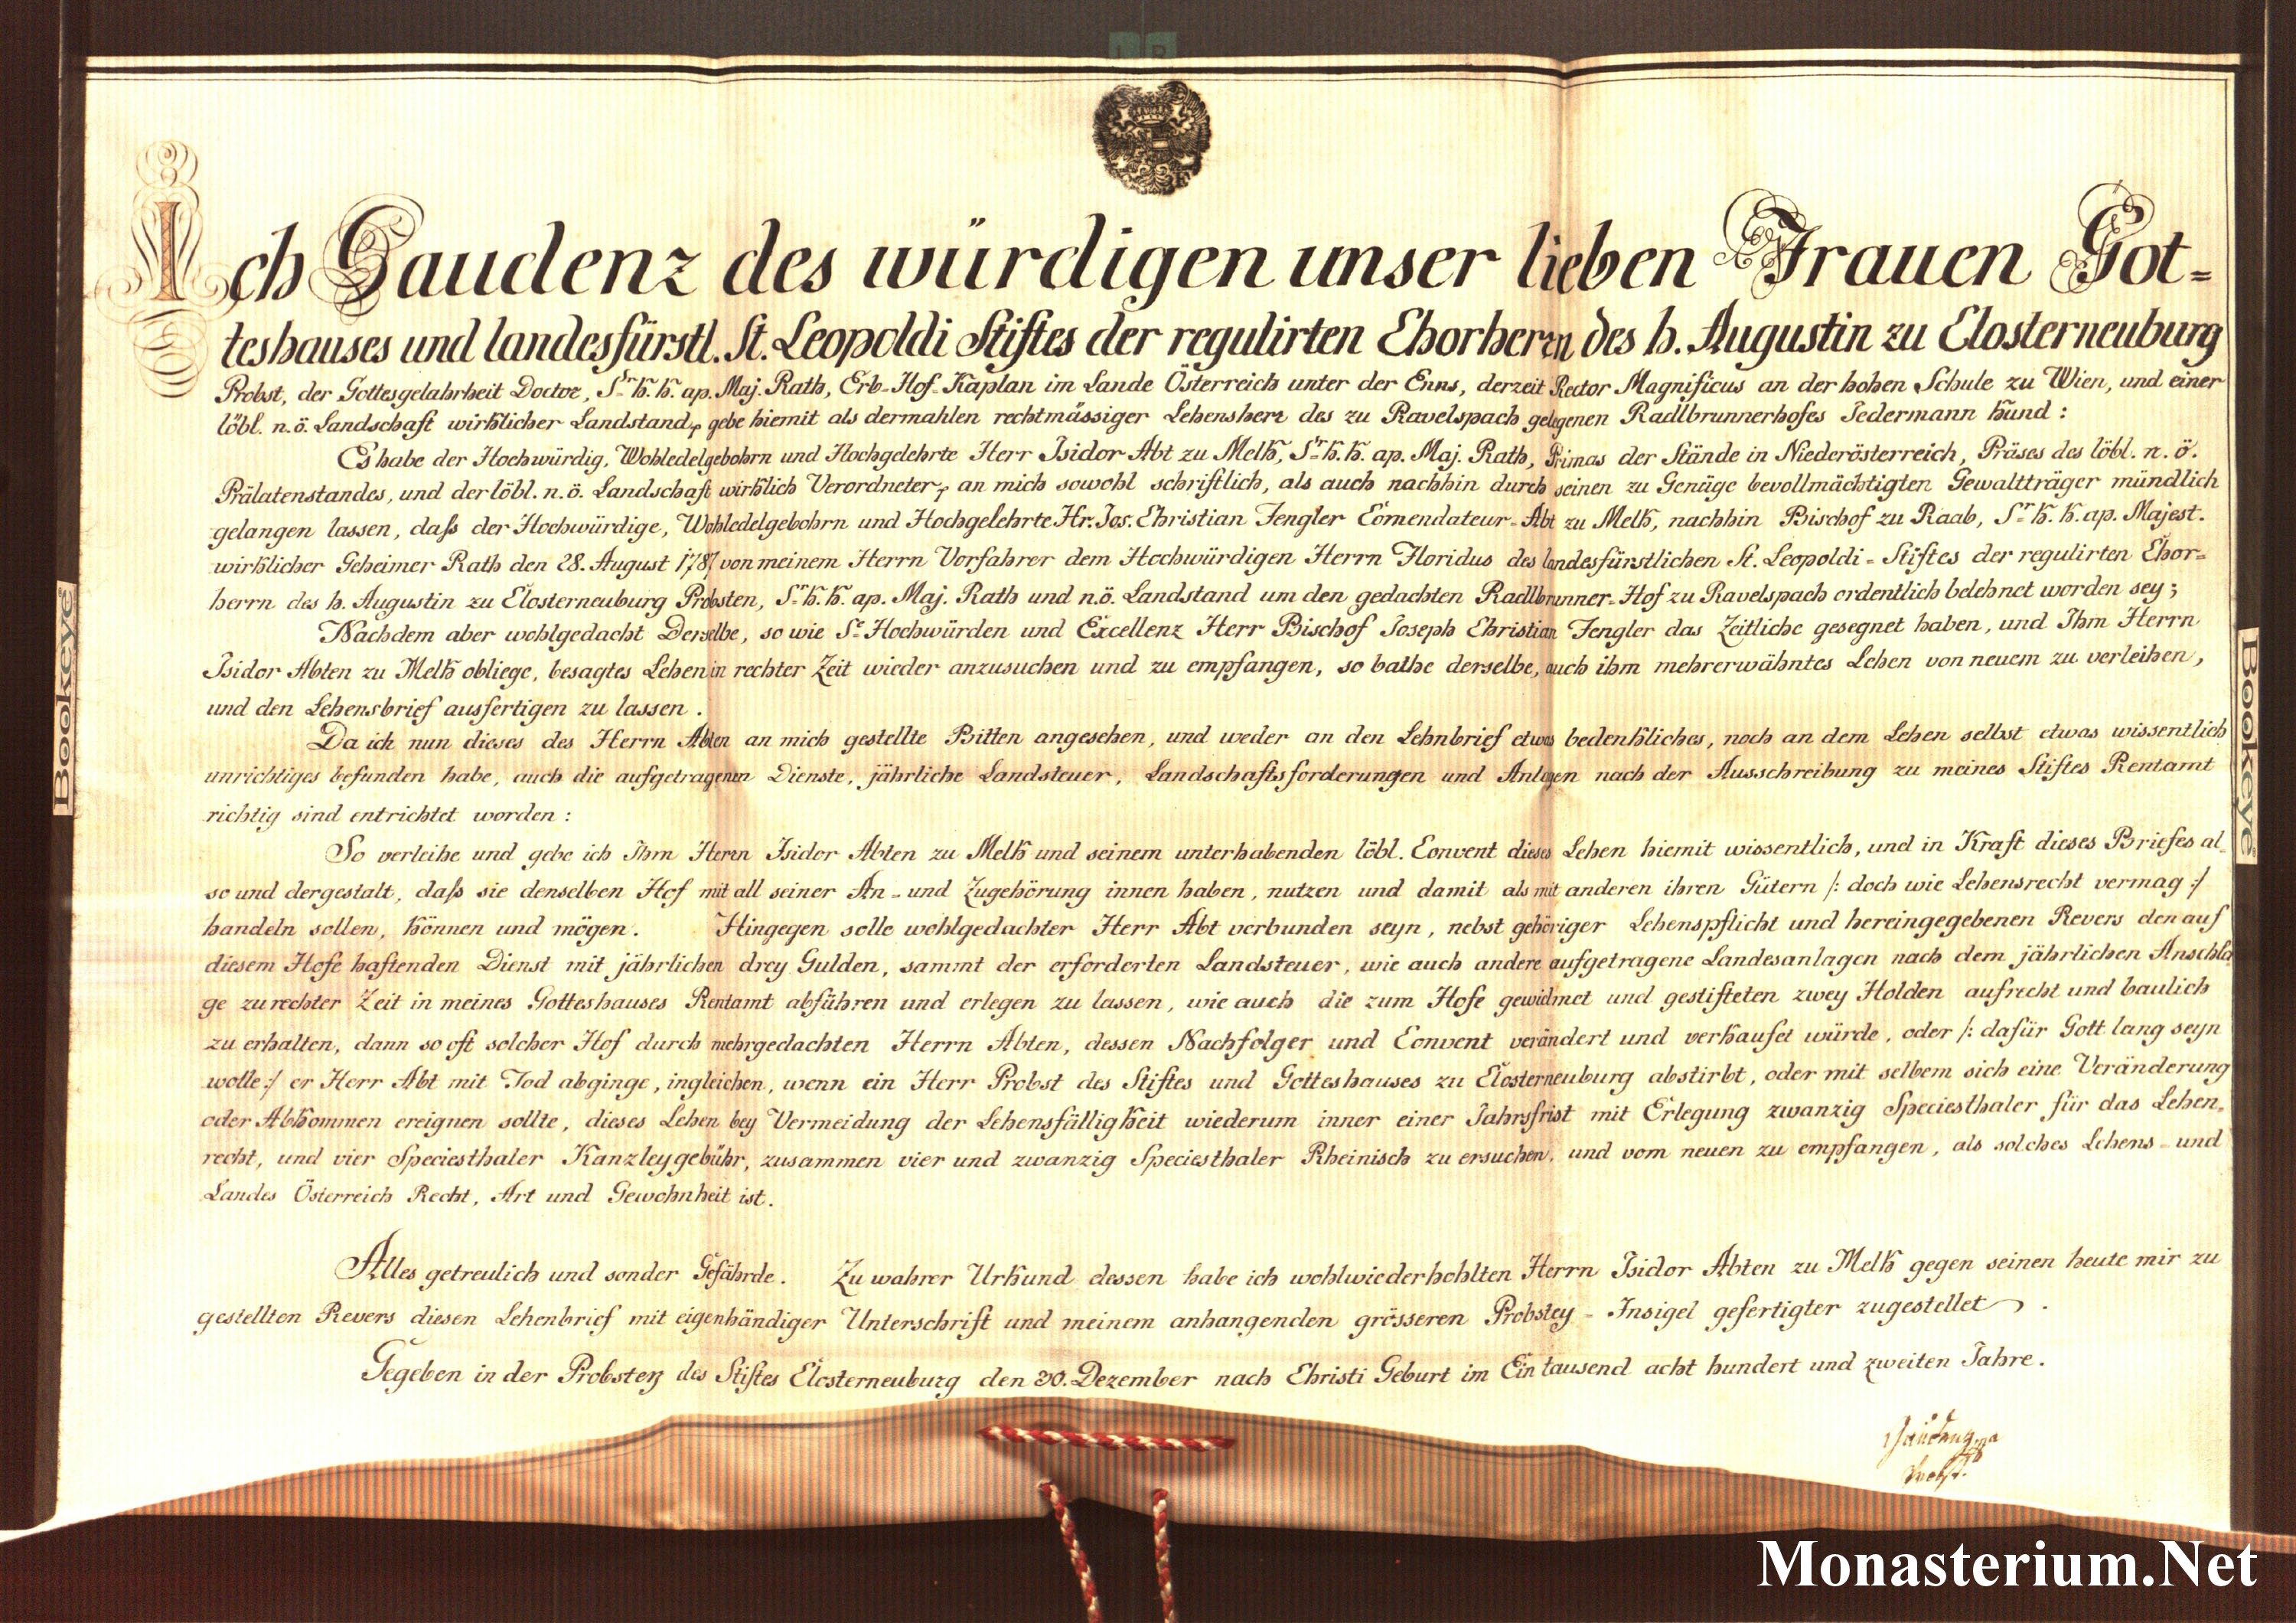 Ich Gaudenz des würdigen unser lieben Frauen Got=
teshauses und landesfürstl. St. Leopoldi Stiftes der regulirten Chorherrn des h. Augustin zu Closterneuburg
Probst, der Gottesgelahrheit Doctor, Sr. K. K. ap. Maj. Rath, Erb-Hof-Kaplan im Lande Österreich unter der Enns, derzeit Rector Magnificus an der hohen Schule zu Wien, und einer
löbl. n. ö. Landschaft wirklicher Landstand, gebe hiemit als dermahlen rechtmässiger Lehensherr des zu Ravelspach gelegenen Radlbrunnerhofes Jedermann kund:
Es habe der Hochwürdig, Wohledelgebohrn und Hochgelehrte Herr Isidor Abt zu Melk, Sr. K. K. ap. Maj. Rath, Primas der Stände in Niederösterreich, Präses des löbl. n. ö.
Prälatenstandes, und der löbl. n. ö. Landschaft wirklich Verordneter, an mich sowohl schriftlich, als auch nachhin durch seinen zu Genüge bevollmächtigten Gewaltträger mündlich
gelangen lassen, daß der Hochwürdige, Wohledelgebohrn und Hochgelehrte Hr. Jos. Christian Fengler Com̄endateur-Abt zu Melk, nachhin Bischof zu Raab, Sr. K. K. ap. Majest.
wirklicher Geheimer Rath den 28. August 1787 von meinem Herrn Vorfahrer dem Hochwürdigen Herrn Floridus des landesfürstlichen St. Leopoldi-Stiftes der regulirten Chor=
herrn des h. Augustin zu Closterneuburg Probsten, Sr. K. K. ap. Maj. Rath und n. ö. Landstand um den gedachten Radlbrunner-Hof zu Ravelspach ordentlich belehnet worden sey;
Nachdem aber wohlgedacht Derselbe, so wie Se Hochwürden und Excellenz Herr Bischof Joseph Christian Fengler das Zeitliche gesegnet haben, und Ihm Herrn
Isidor Abten zu Melk obliege, besagtes Lehen in rechter Zeit wieder anzusuchen und zu empfangen, so bathe derselbe, auch ihm mehrerwähntes Lehen von neuem zu verleihen,
und den Lehensbrief ausfertigen zu lassen.
Da ich nun dieses des Herrn Abten an mich gestellte Bitten angesehen, und weder an den Lehnbrief etwas bedenkliches, noch an dem Lehen selbst etwas wissentlich
unrichtiges befunden habe, auch die aufgetragenen Dienste, jährliche Landsteuer, Landschaftsforderungen und Anlagen nach der Ausschreibung zu meines Stiftes Rentamt
richtig sind entrichtet worden:
So verleihe und gebe ich Ihm Herrn Isidor Abten zu Melk und seinem unterhabenden löbl. Convent dieses Lehen hiemit wissentlich, und in Kraft dieses Briefes al=
so und dergestalt, daß sie denselben Hof mit all seiner An- und Zugehörung innen haben, nutzen und damit als mit anderen ihren Gütern /: doch wie Lehensrecht vermag :/
handeln sollen, können und mögen. Hingegen solle wohlgedachter Herr Abt verbunden seyn, nebst gehöriger Lehenspflicht und hereingegebenen Revers den auf
diesem Hofe haftenden Dienst mit jährlichen drey Gulden, sammt der erforderten Landsteuer, wie auch andere aufgetragene Landesanlagen nach dem jährlichen Anschla
ge zu rechter Zeit in meines Gotteshauses Rentamt abführen und erlegen zu lassen, wie auch die zum Hofe gewidmet und gestifteten zwey Holden aufrecht und baulich
zu erhalten, dann so oft solcher Hof durch mehrgedachten Herrn Abten, dessen Nachfolger und Convent verändert und verkaufet würde, oder /: dafür Gott lang seyn
wolle :/ er Herr Abt mit Tod abginge, ingleichen, wenn ein Herr Probst des Stiftes und Gotteshauses zu Closterneuburg abstirbt, oder mit selbem sich eine Veränderung
oder Abkommen ereignen sollte, dieses Lehen bey Vermeidung der Lehensfälligkeit wiederum inner einer Jahrsfrist mit Erlegung zwanzig Speciesthaler für das Lehen=
recht, und vier Speciesthaler Kanzleygebühr, zusammen vier und zwanzig Speciesthaler Rheinisch zu ersuchen, und vom neuen zu empfangen, als solches Lehens- und
Landes Österreich Recht, Art und Gewohnheit ist.
Alles getreulich und sonder Gefährde. Zu wahrer Urkund dessen habe ich wohlwiederhohlten Herrn Isidor Abten zu Melk gegen seinen heute mir zu
gestellten Revers diesen Lehenbrief mit eigenhändiger Unterschrift und meinem anhangenden grösseren Probstey-Insigel gefertigter zugestellet.
Gegeben in der Probstey des Stiftes Closterneuburg den 30. Dezember nach Christi Geburt im Ein tausend acht hundert und zweiten Jahre.
Gaudenz
Probst.
Bookeye
Bookeye
Monasterium.Net